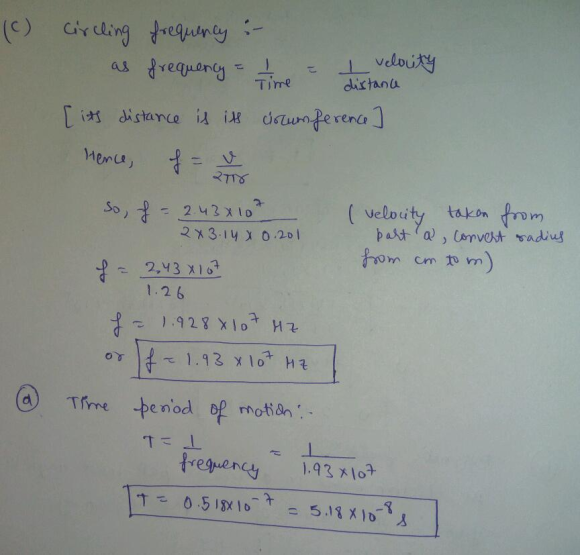 (C) Circling frequency :-
as frequency = 1/Time = 1/distance velocity
[its distance is its circumference]
Hence, f = v/2πr
So, f = 2.43 x 10^7 / 2 x 3.14 x 0.201
(velocity taken from part 'a', convert radius from cm to m)
f = 2.43 x 10^7 / 1.26
f = 1.928 x 10^7 Hz
or f = 1.93 x 10^7 Hz
(d) Time period of motion:-
T = 1/frequency = 1/1.93 x 10^7
T = 0.518x10^-7 = 5.18 x 10^-8 s